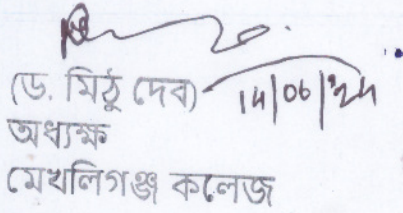 (ড. মিঠু দেব) 14/06/24
অধ্যক্ষ
মেখলিগঞ্জ কলেজ